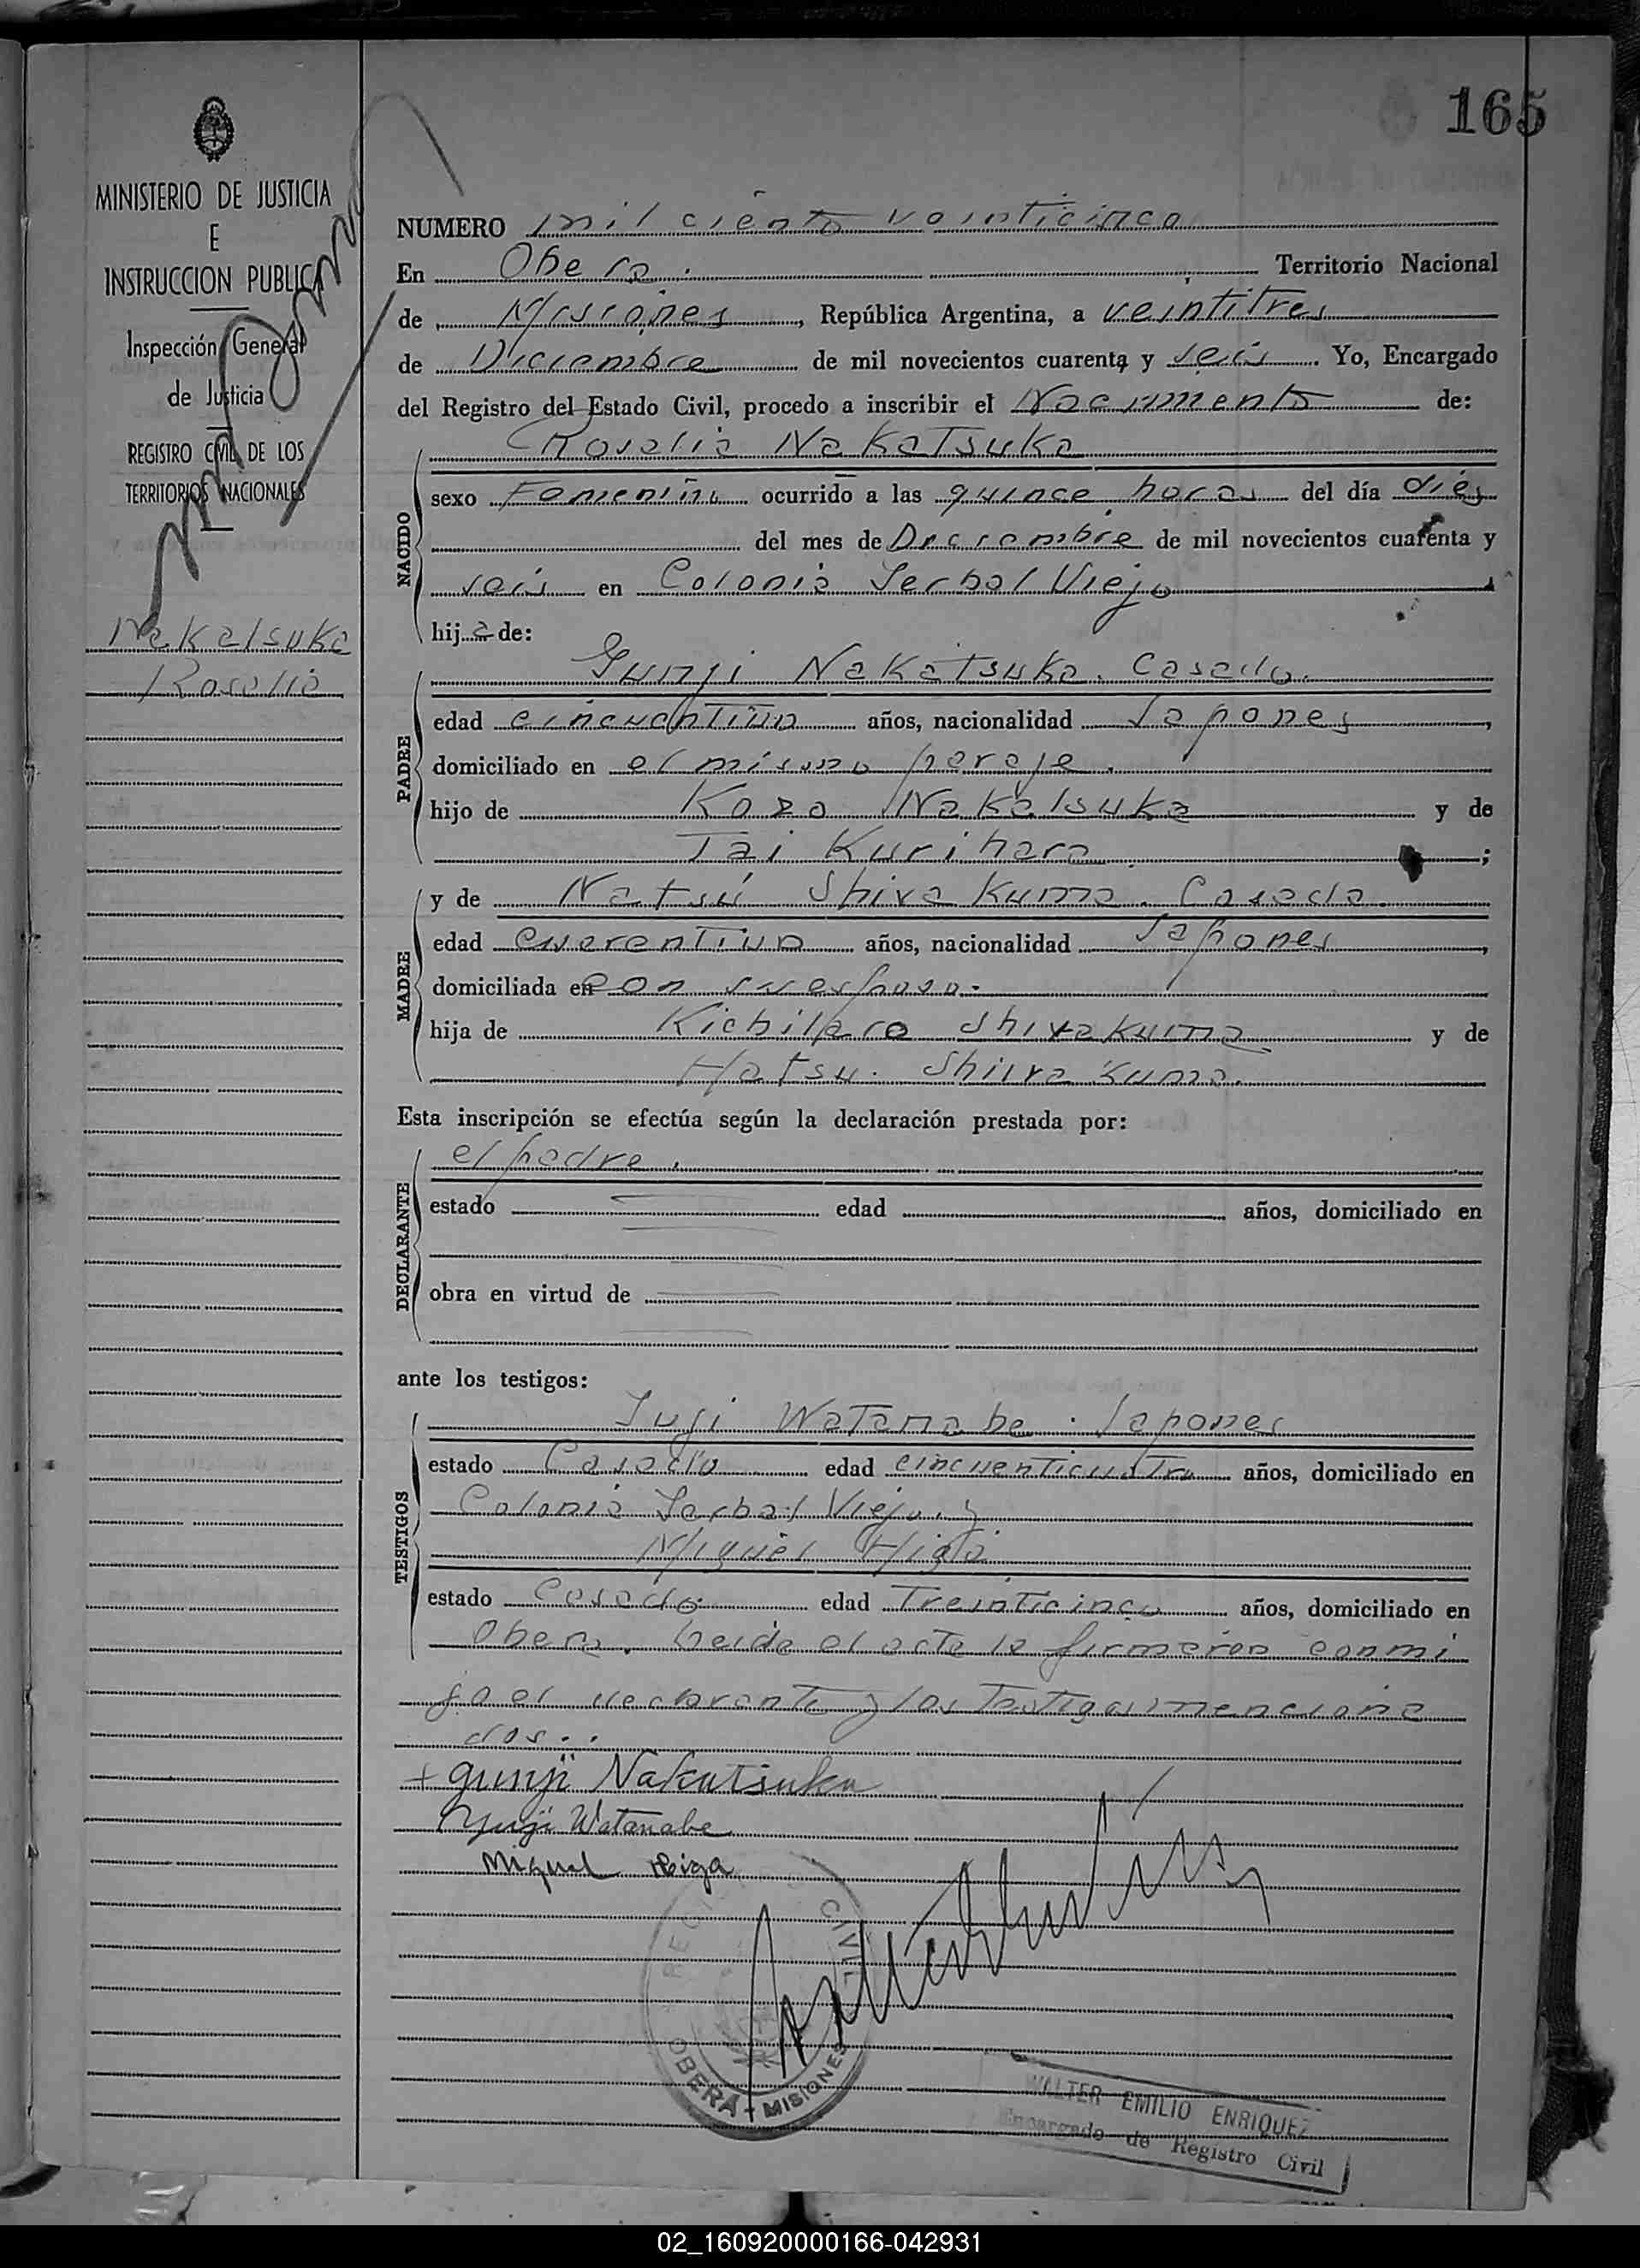 165
MINISTERIO DE JUSTICIA
E
INSTRUCCION PUBLICA
Inspección General
de Justicia
REGISTRO CIVIL DE LOS
TERRITORIOS NACIONALES
Nakatsuka
Rosalia
NUMERO mil ciento veinticinco
En Obera. Territorio Nacional
de Misiones, República Argentina, a veintitres
de Diciembre de mil novecientos cuarenta y seis. Yo, Encargado
del Registro del Estado Civil, procedo a inscribir el Nacimento de:
Rosalia Nakatsuka
NACIDO
sexo Femenino ocurrido a las quince horas del día diés
del mes de Diciembre de mil novecientos cuarenta y
seis en Colonia Yerbal Viejo
hija de:
Gunji Nakatsuka. Casado.
PADRE
edad cincuentiun años, nacionalidad Japones,
domiciliado en el mismo paraje.
hijo de Kozo Nakatsuka y de
Tai Kurihara ;
MADRE
y de Natsú Shirakuma. Casada.
edad cuarentiun años, nacionalidad Japones,
domiciliada en con su esposo.
hija de Shirakuma y de
Hatsu. Shirakuma.
Esta inscripción se efectúa según la declaración prestada por:
DECLARANTE
el padre.
estado edad años, domiciliado en
obra en virtud de
ante los testigos:
TESTIGOS
Yuji Watanabe. Japones
estado Casado edad cincuenticuatro años, domiciliado en
Colonia Yerbal Viejo. y
Miguel Higa
estado Casado edad Treinticinco años, domiciliado en
Obera. Leida el acta la firmaron conmi
go el declarante y los testigos menciona
dos..
+ gunji Nakatsuka
Yuji Watanabe
Miguel Higa
REGISTRO CIVIL
OBERÁ - MISIONES
WALTER EMILIO ENRIQUEZ
Encargado de Registro Civil
02_160920000166-042931